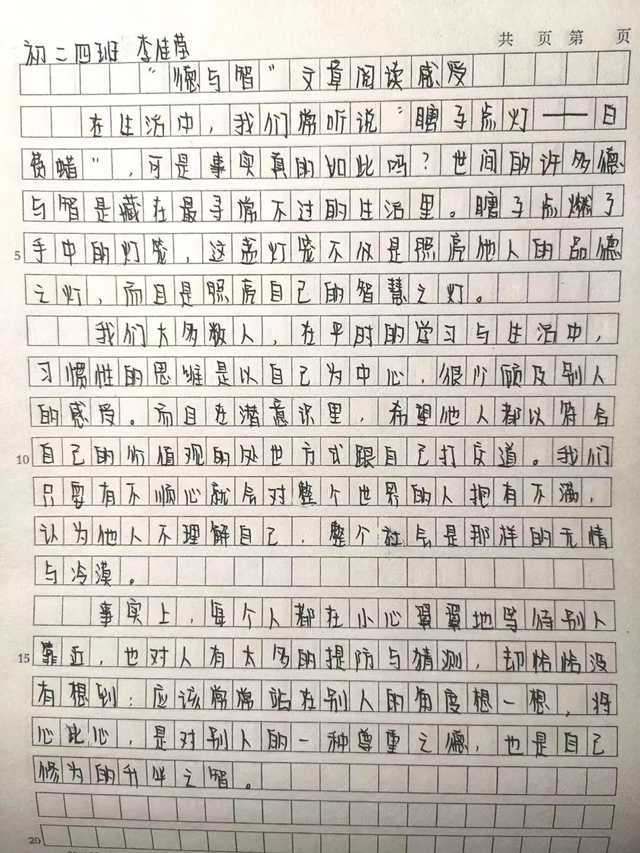 共 页 第 页
初二四班 李佳莹
“德与智”文章阅读感受
在生活中，我们常听说“瞎子点灯——白
费蜡”，可是事实真的如此吗？世间的许多德
与智是藏在最寻常不过的生活里。瞎子点燃了
5 手中的灯笼，这盏灯笼不仅是照亮他人的品德
之灯，而且是照亮自己的智慧之灯。
我们大多数人，在平时的学习与生活中，
习惯性的思维是以自己为中心，很少顾及别人
的感受。而且在潜意识里，希望他人都以符合
10 自己的价值观的处世方式跟自己打交道。我们
只要有不顺心就会对整个世界的人抱有不满，
认为他人不理解自己，整个社会是那样的无情
与冷漠。
事实上，每个人都在小心翼翼地等待别人
15 靠近，也对人有太多的提防与猜测，却恰恰没
有想到：应该常常站在别人的角度想一想，将
心比心，是对别人的一种尊重之德，也是自己
修为的升华之智。
20